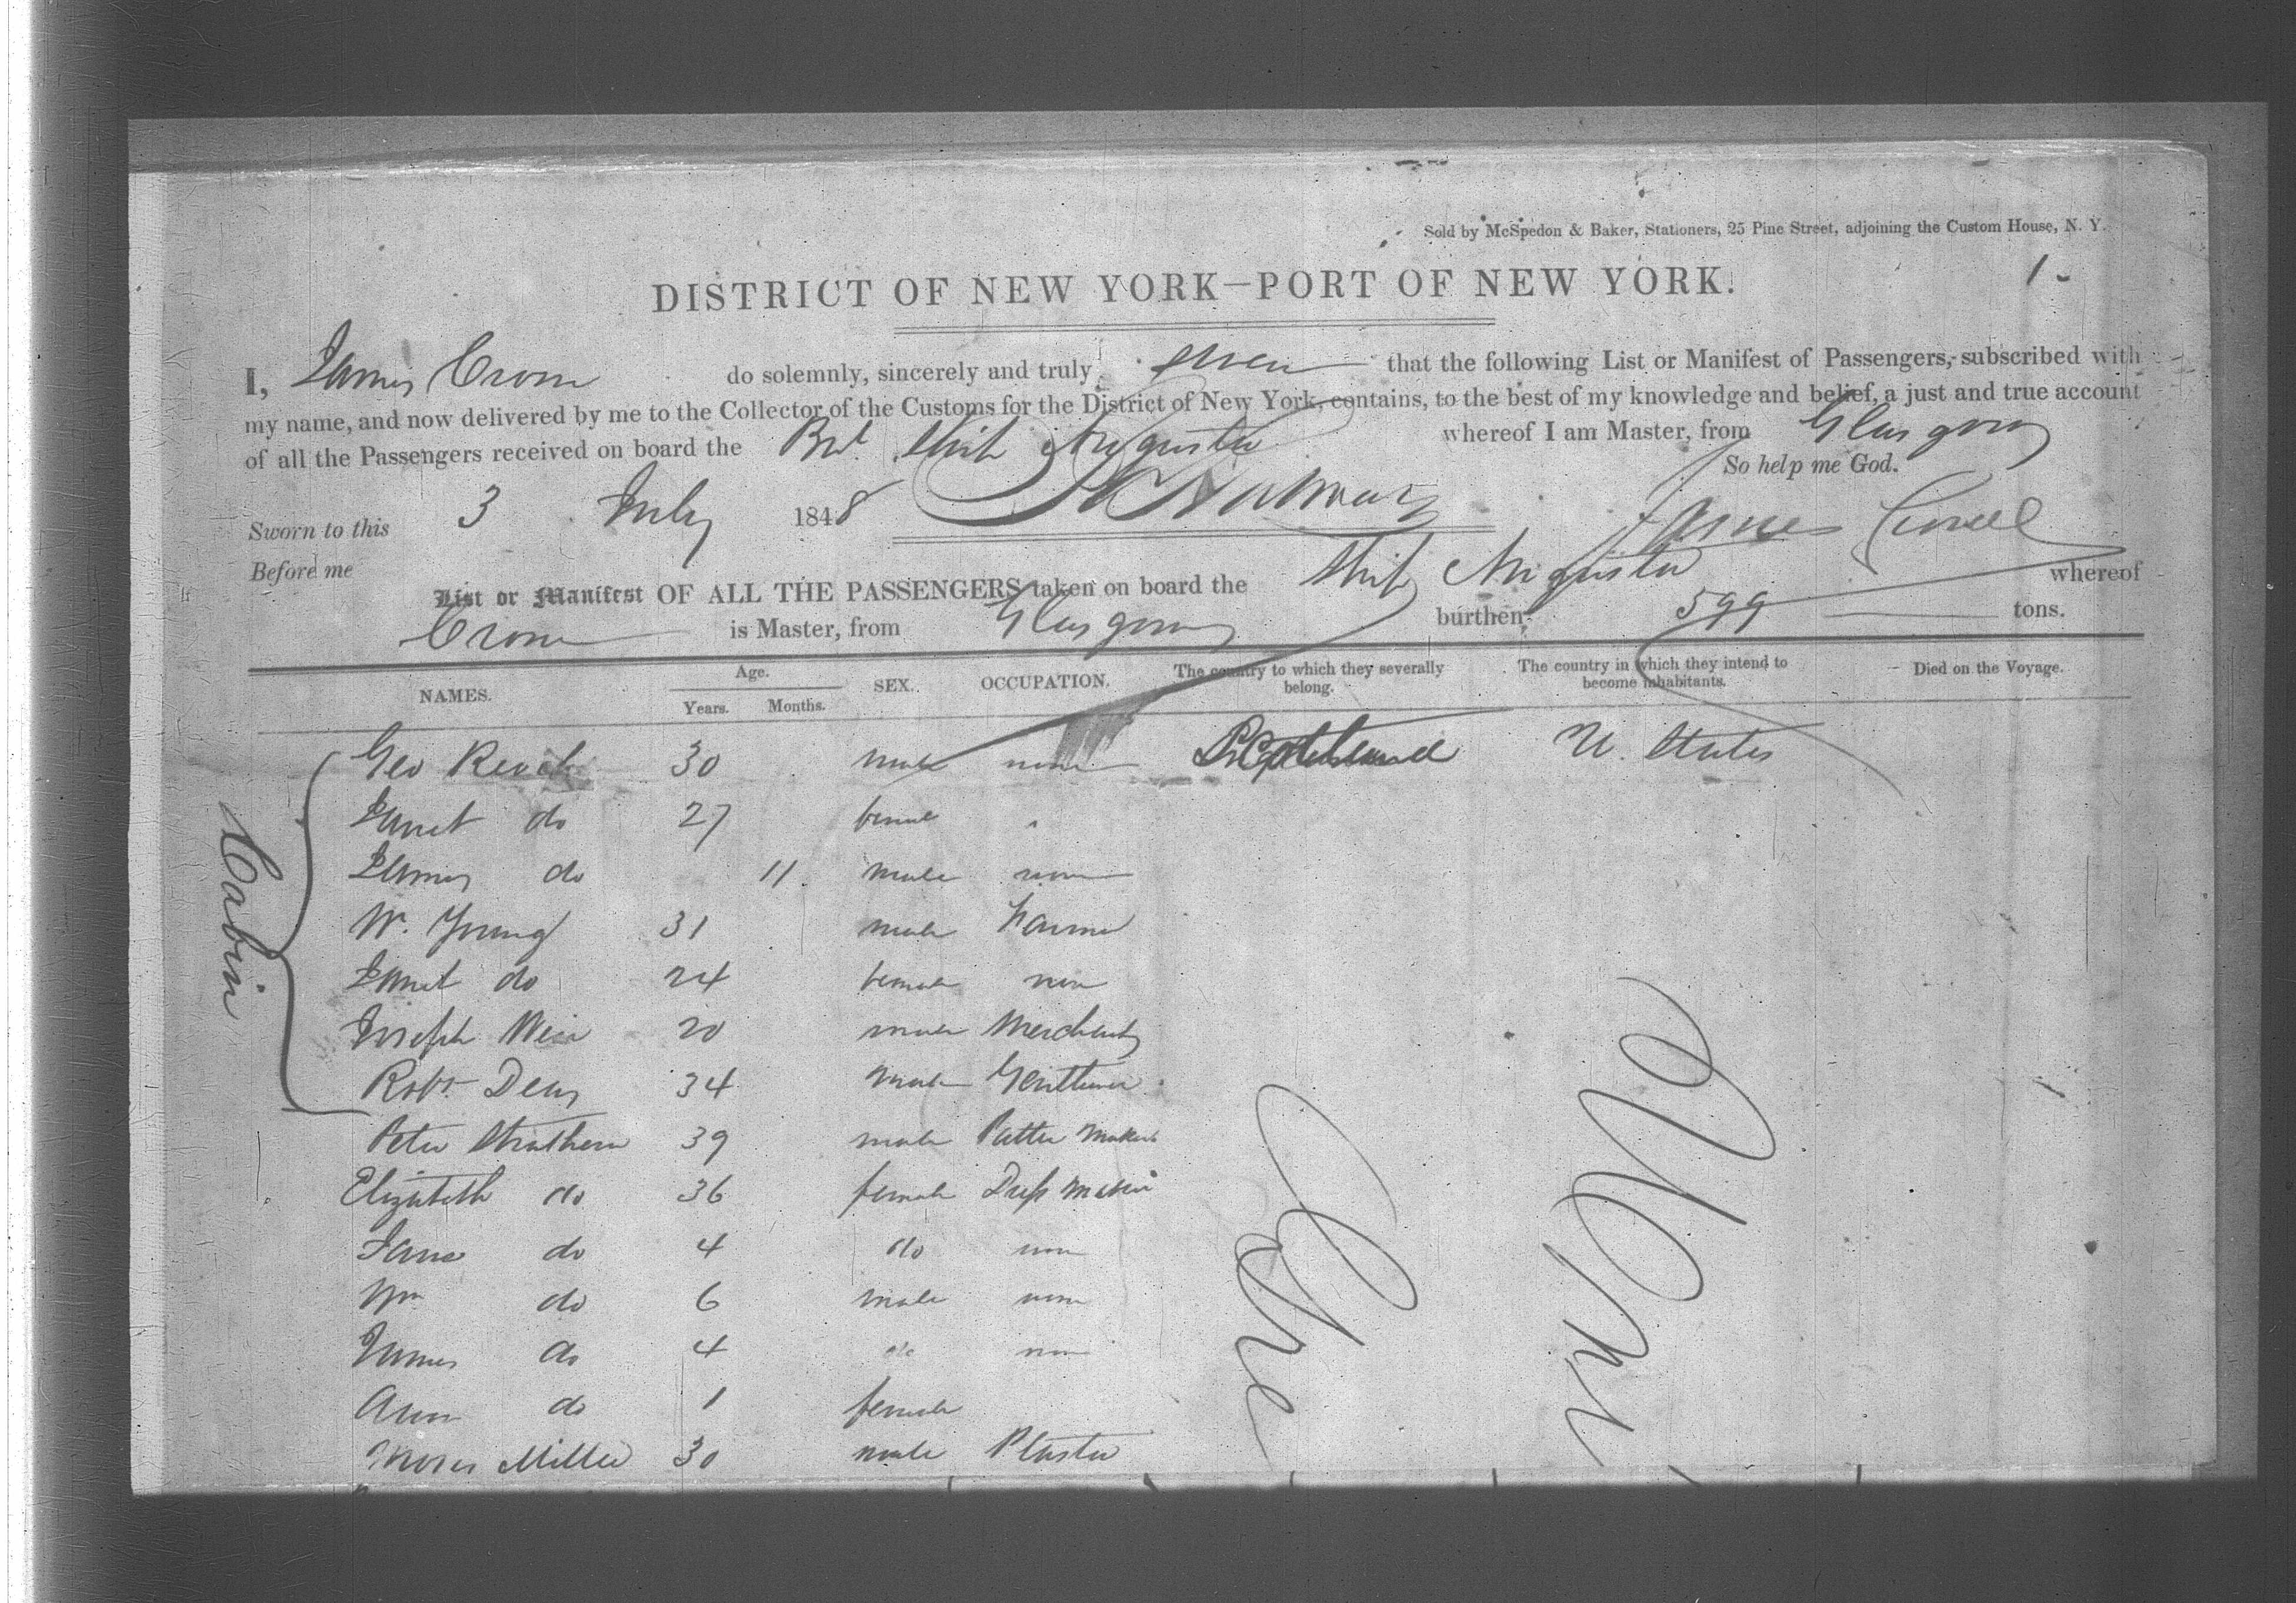 Sold by McSpedon & Baker, Stationers, 25 Pine Street, adjoining the Custom House, N. Y.
DISTRICT OF NEW YORK—PORT OF NEW YORK. 1-
I, James do solemnly, sincerely and truly swear that the following List or Manifest of Passengers, subscribed with
my name, and now delivered by me to the Collector of the Customs for the District of New York, contains, to the best of my knowledge and belief, a just and true account
of all the Passengers received on board the Brt. Ship Augusta whereof I am Master, from Glasgow
So help me God.
Sworn to this 3 July 1848
James
Before me
List or Manifest OF ALL THE PASSENGERS taken on board the Ship Augusta whereof
is Master, from Glasgow burthen 599 tons.
NAMES. Age. Years. Months. SEX. OCCUPATION. The country to which they severally belong. The country in which they intend to become inhabitants. Died on the Voyage.
Cabin
Geo 30 male none Scotland U. States
Janet do 27 female
James do 11 male none
W. Young 31 male Farmer
Janet do 24 female none
Joseph Weir 20 male Merchant
Robt. 34 male Gentleman
Peter Strathern 39 male Patter Maker
Elizabeth do 36 female Dress Maker
Jane do 4 do none
Wm do 6 male none
James do 4 do none
Ann do 1 female
Moses Miller 30 male Plaster